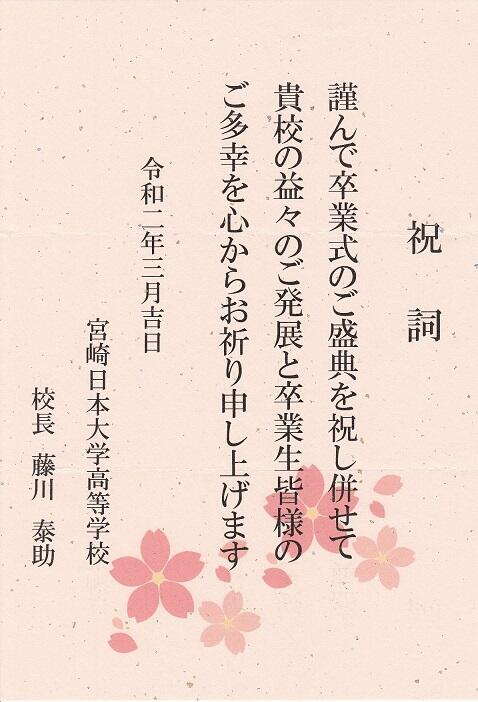 祝詞
謹んで卒業式のご盛典を祝し併せて
貴校の益々のご発展と卒業生皆様の
ご多幸を心からお祈り申し上げます
令和二年三月吉日
宮崎日本大学高等学校
校長 藤川 泰助